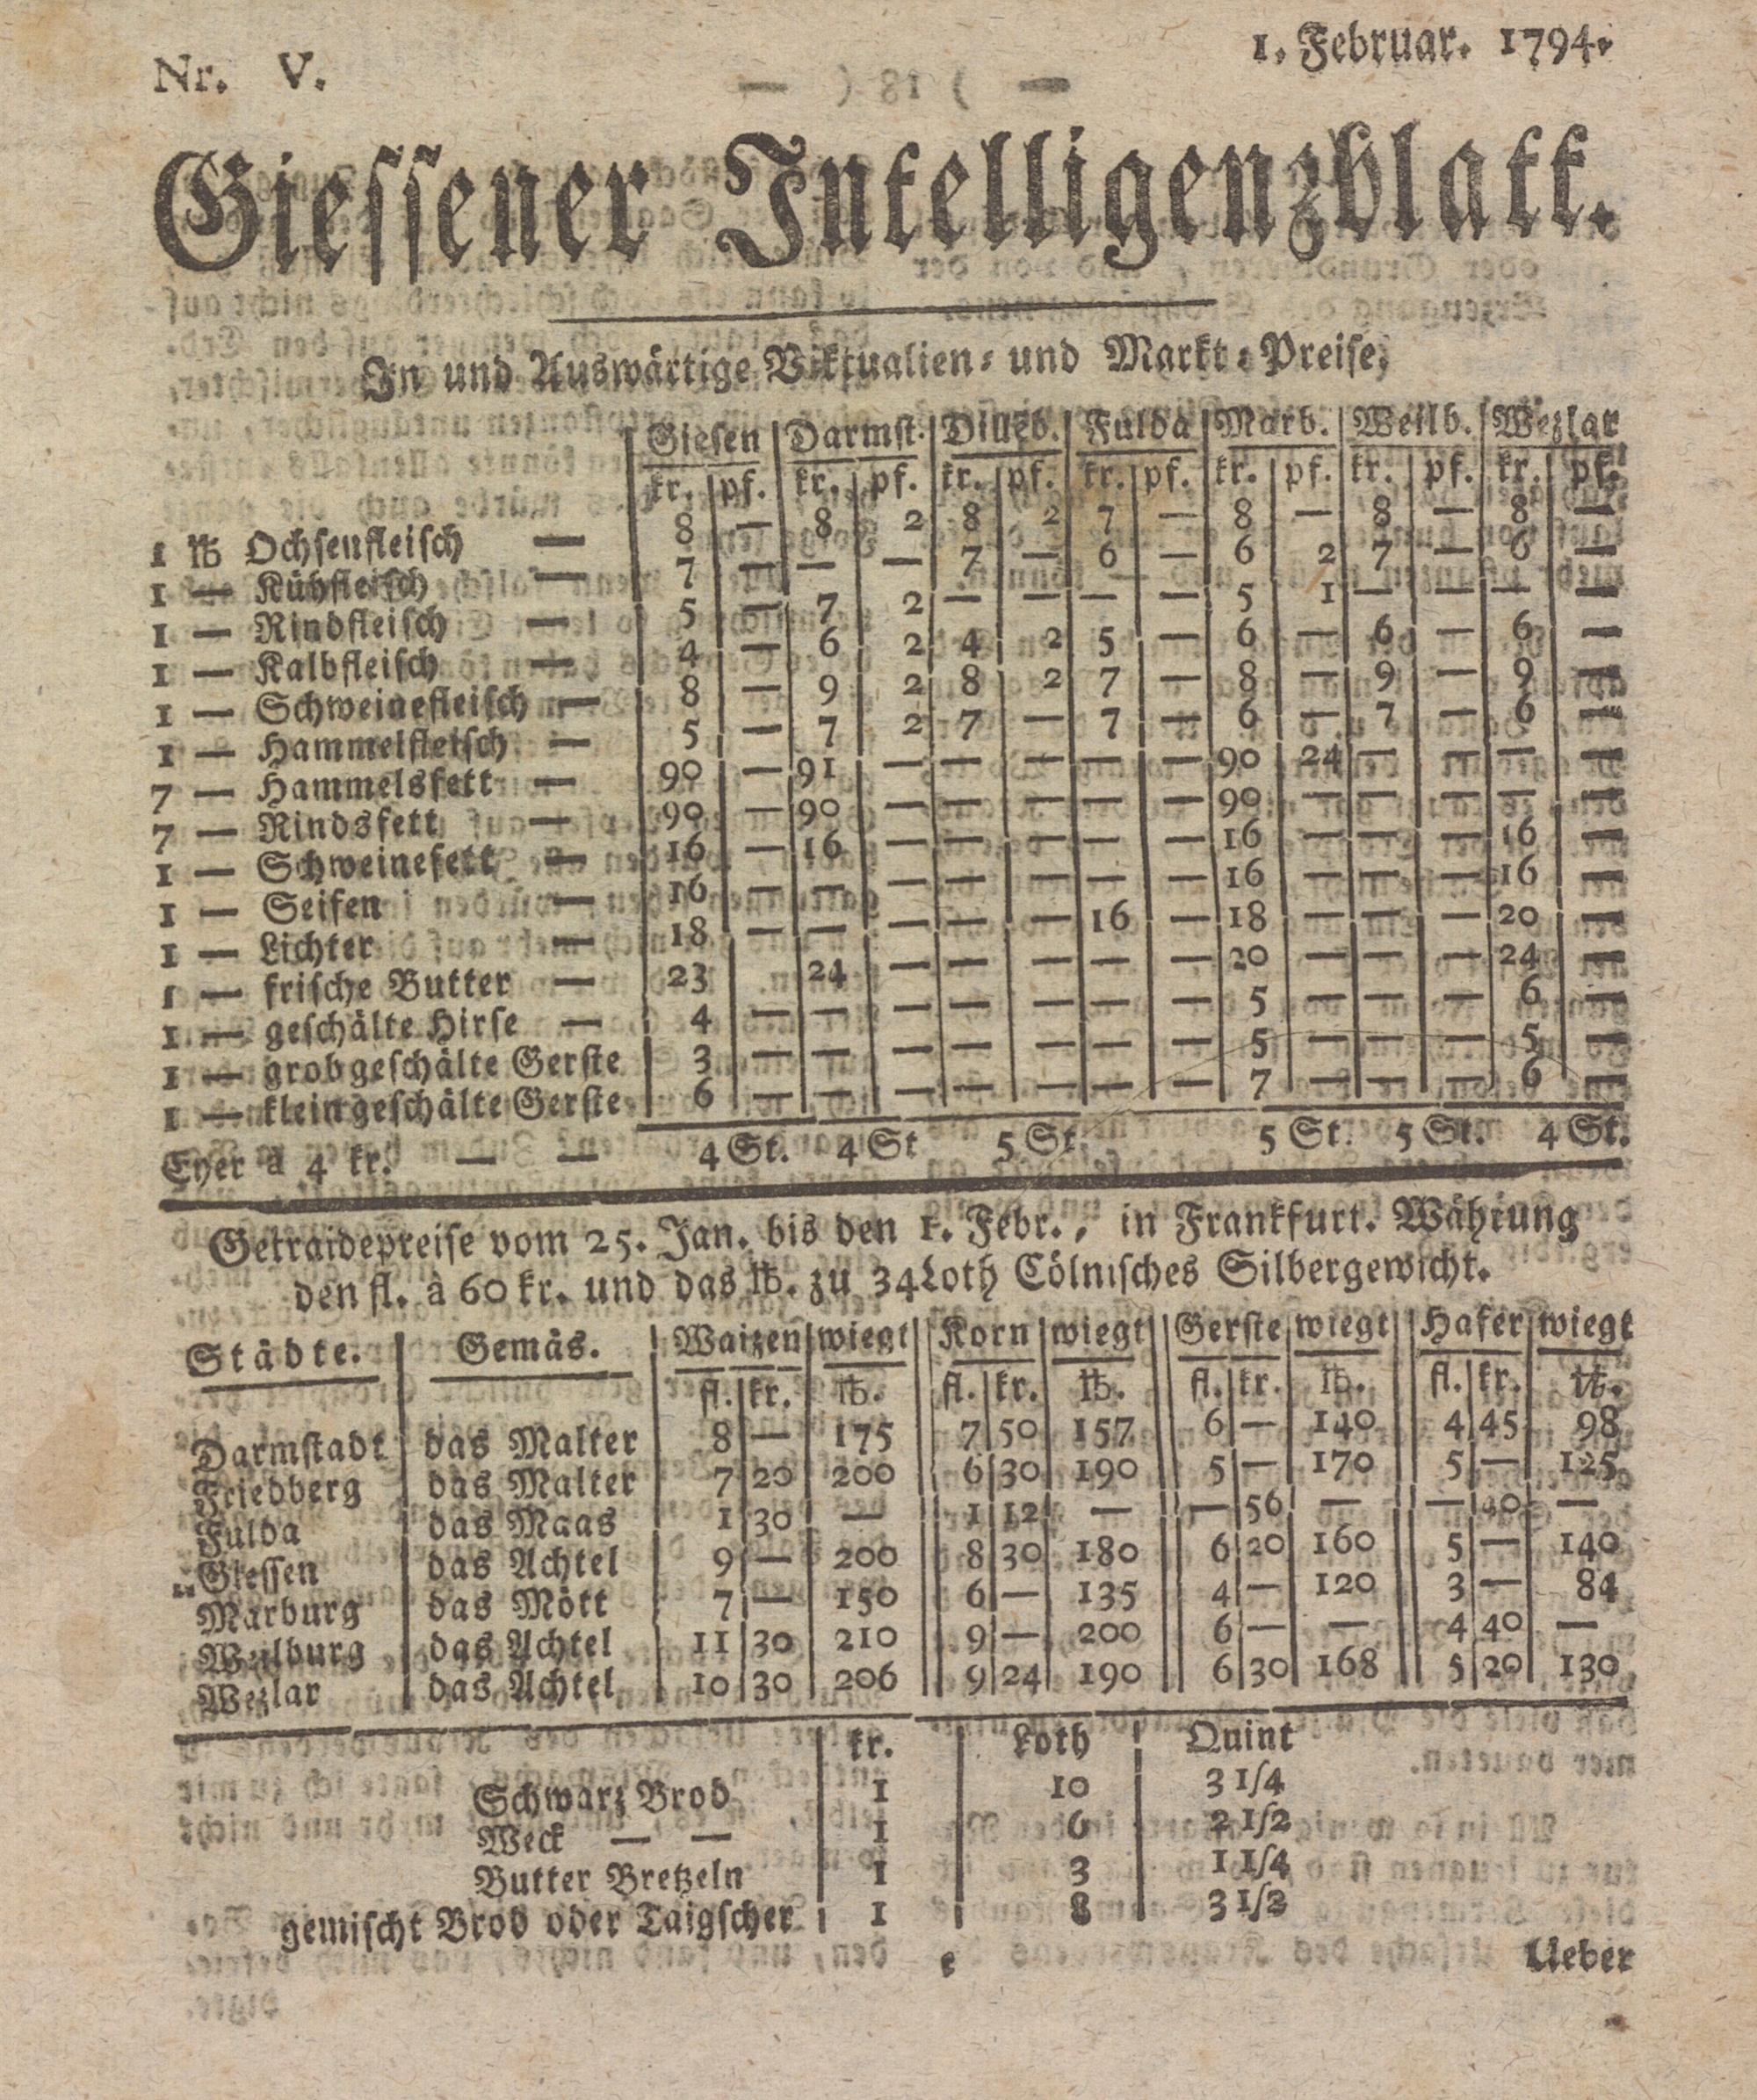 Nr. V.
1. Februar. 1794.
Giessener Intelligenzblatt.
In und Auswärtige Viktualien- und Markt-Preise,
Giesen | Darmst. | Dillenb. | Fulda | Marb. | Weilb. | Wezlar
kr. | pf. | kr. | pf. | kr. | pf. | kr. | pf. | kr. | pf. | kr. | pf. | kr. | pf.
1 ℔ Ochsenfleisch — 8 | — | 8 | 2 | 8 | 2 | 7 | — | 8 | — | 8 | — | 8 | —
1 — Kühfleisch — 7 | — | — | — | 7 | — | 6 | — | 6 | 2 | 7 | — | 6 | —
1 — Rindfleisch — 5 | — | 7 | 2 | — | — | — | — | 5 | 1 | — | — | — | —
1 — Kalbfleisch — 4 | — | 6 | 2 | 4 | 2 | 5 | — | 6 | — | 6 | — | 6 | —
1 — Schweinefleisch — 8 | — | 9 | 2 | 8 | 2 | 7 | — | 8 | — | 9 | — | 9 | —
1 — Hammelfleisch — 5 | — | 7 | 2 | 7 | — | 7 | — | 6 | — | 7 | — | 6 | —
7 — Hammelsfett — 90 | — | 91 | — | — | — | — | — | 90 | 24 | — | — | — | —
7 — Rindsfett — 90 | — | 90 | — | — | — | — | — | 90 | — | — | — | — | —
1 — Schweinefett — 16 | — | 16 | — | — | — | — | — | 16 | — | — | — | 16 | —
1 — Seifen — 16 | — | — | — | — | — | — | — | 16 | — | — | — | 16 | —
1 — Lichter — 18 | — | — | — | — | — | 16 | — | 18 | — | — | — | 20 | —
1 — frische Butter — 23 | | 24 | — | — | — | — | — | 20 | — | — | — | 24 | —
1 — geschälte Hirse — 4 | — | — | — | — | — | — | — | 5 | — | — | — | 6 | —
1 — grob geschälte Gerste 3 | — | — | — | — | — | — | — | 5 | — | — | — | 5 | —
1 — klein geschälte Gerste 6 | — | — | — | — | — | — | — | 7 | — | — | — | 6 | —
Eyer à 4 kr. — — 4 St. 4 St 5 St. 5 St. 5 St. 4 St.
Getraidepreise vom 25. Jan. bis den 1. Febr., in Frankfurt. Währung
den fl. à 60 kr. und das ℔. zu 34 Loth Cölnisches Silbergewicht.
Städte. | Gemäs. | Waizen | wiegt || Korn | wiegt || Gerste | wiegt || Hafer | wiegt
fl. | kr. | ℔. || fl. | kr. | ℔. || fl. | kr. | ℔. || fl. | kr. | ℔.
Darmstadt | das Malter | 8 | — | 175 || 7 | 50 | 157 || 6 | — | 140 || 4 | 45 | 98
Friedberg | das Malter | 7 | 20 | 200 || 6 | 30 | 190 || 5 | — | 170 || 5 | — | 125
Fulda | das Maas | 1 | 30 | — || 1 | 12 | — || — | 56 | — || — | 40 | —
Giessen | das Achtel | 9 | — | 200 || 8 | 30 | 180 || 6 | 20 | 160 || 5 | — | 140
Marburg | das Mött | 7 | — | 150 || 6 | — | 135 || 4 | — | 120 || 3 | — | 84
Weilburg | das Achtel | 11 | 30 | 210 || 9 | — | 200 || 6 | — | — || 4 | 40 | —
Wezlar | das Achtel | 10 | 30 | 206 || 9 | 24 | 190 || 6 | 30 | 168 || 5 | 20 | 130
kr. | Loth | Quint
Schwarz Brod | 1 | 10 | 3 1/4
Weck — — | 1 | 6 | 2 1/2
Butter Bretzeln | 1 | 3 | 1 1/4
gemischt Brod oder Taigscher | 1 | 8 | 3 1/2
e
Ueber